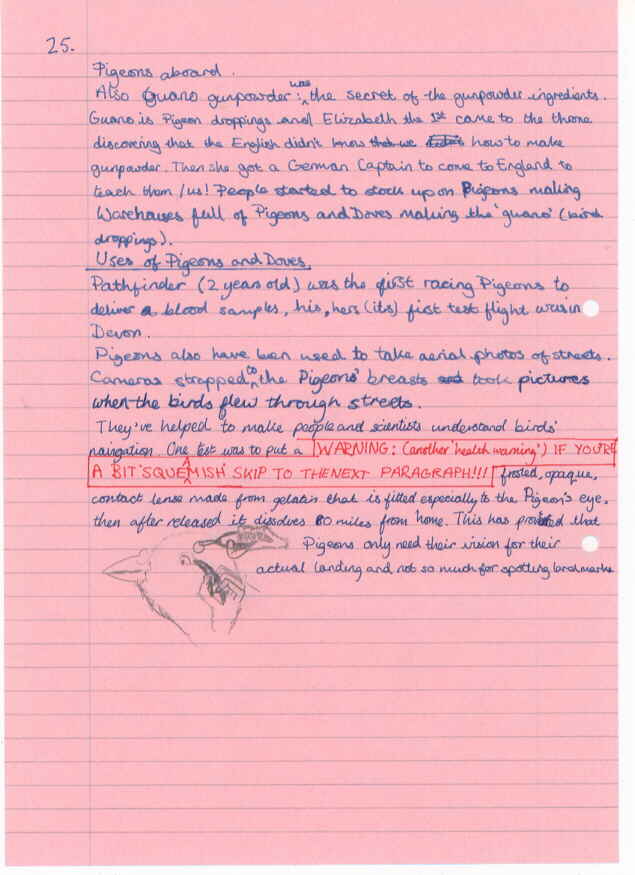 25.
Pigeons aboard.
Also Guano gunpowder: was the secret of the gunpowder ingredients.
Guano is Pigeon droppings and Elizabeth the 1st came to the throne
discovering that the English didn't know that we how to make
gunpowder. Then she got a German Captain to come to England to
teach them/us! People started to stock up on Pigeons making
Warehouses full of Pigeons and Doves making the 'guano' (birds
droppings).
Uses of Pigeons and Doves
Pathfinder (2 years old) was the first racing Pigeons to
deliver a blood samples, his, hers (its) first test flight was in
Devon.
Pigeons also have been used to take aerial photos of streets.
Cameras strapped to the Pigeons' breasts and took pictures
when the birds flew through streets.
They've helped to make people and scientists understand birds'
navigation. One test was to put a WARNING: (another 'health warning') IF YOU'RE
A BIT SQUEMISH SKIP TO THE NEXT PARAGRAPH!!! frosted, opaque,
contact lense made from gelatin that is fitted especially to the Pigeon's eye,
then after released it dissolves 80 miles from home. This has provided that
Pigeons only need their vision for their
actual landing and not so much for spotting landmarks